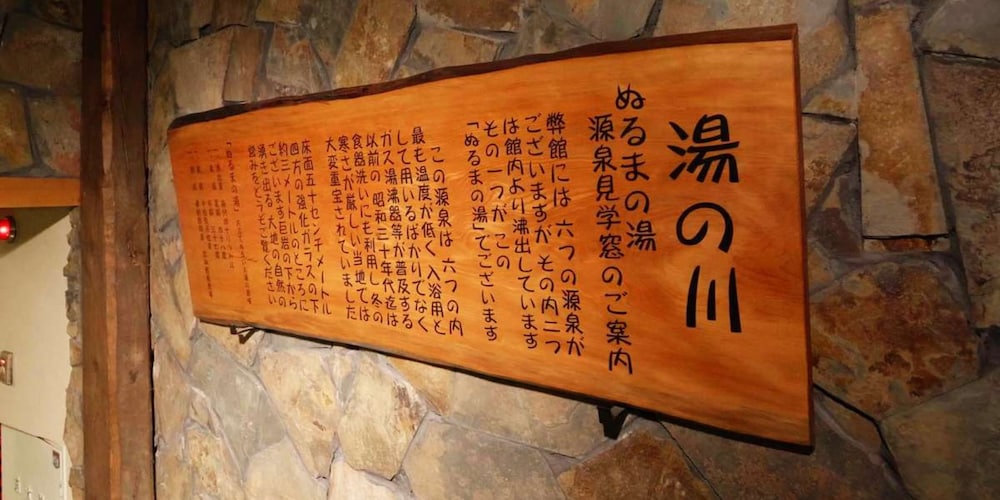 湯の川
ぬるまの湯
源泉見学窓のご案内
弊館には 六つの源泉が
ございますが その内二つ
は館内より沸出しています
その一つが この
「ぬるまの湯」でございます
この源泉は 六つの内
最も温度が低く 入浴用と
して用いるばかりでなく
ガス湯沸器等が普及する
以前の 昭和三十年代迄は
食器洗いにも利用し 冬の
寒さが厳しい当地では
大変重宝されていました
床面五十センチメートル
四方の強化ガラスの下
約三メートルのところに
ございます巨岩の下から
湧き出る 大地の自然の
営みをどうぞご覧ください
「ぬるまの湯」